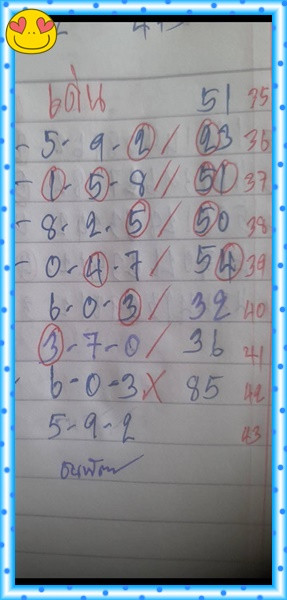 เด่น 51 35
- 5 - 9 - 2 / 23 36
- 1 - 5 - 8 // 51 37
- 8 - 2 - 5 / 50 38
- 0 - 4 - 7 / 54 39
6 - 0 - 3 / 32 40
3 - 7 - 0 / 36 41
- 6 - 0 - 3 X 85 42
5 - 9 - 2 43